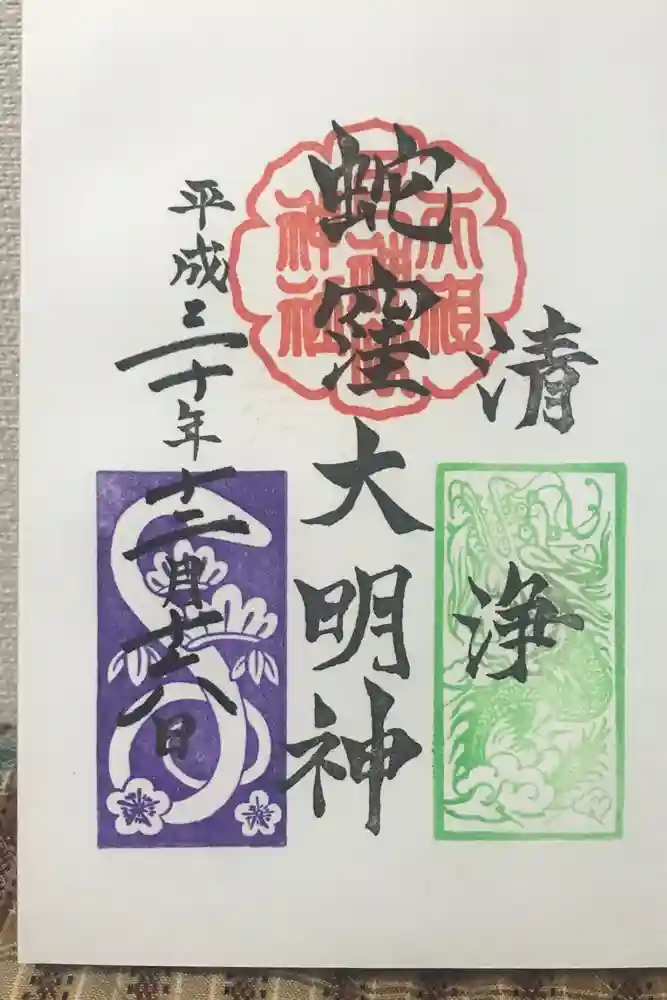 清浄
天祖
神社
蛇窪大明神
平成三十年十二月廿八日